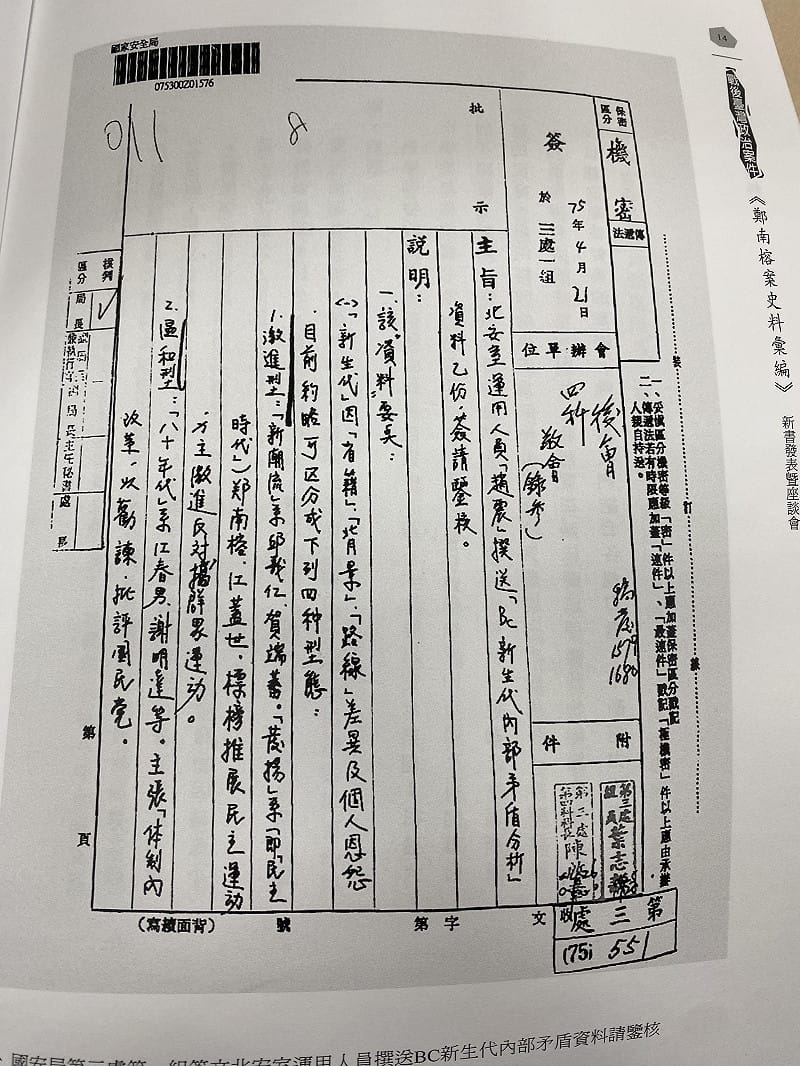 14
戰後臺灣政治案件
《鄭南榕案史料彙編》
新書發表暨座談會
國家安全局
075300Z01576
011
8
保密區分
機密
傳遞法
簽
75年4月21日
於 三處一組
會辦單位
後會
四科
敬會
(錄參)
附件
批示
一、妥慎區分機密等級「密」件以上應加蓋保密區分戳記
二、傳遞法若有時限應加蓋「速件」、「最速件」戳記「極機密」件以上應由承辦人親自持送。
裝
訂
線
1680
第三處
組員葉志
第三處
第四科科長陳
第三處收文
(75) 551
主旨：北安室運用人員「趙震」撰送「BC新生代內部矛盾分析」
資料乙份，簽請鑒核。
說明：
一、該「資料」要點：
㈠「新生代」因「省籍」、「背景」、「路線」差異及個人恩怨
，目前約略可区分成下列四种型態：
1.激進型：「新潮流」系邱義仁、賀端蕃。「蓬揚」系「即「民主
時代」）郑南榕、江蓋世，標榜推展民主運動
，力主激進反对擋群眾運动。
2.溫和型：「八十年代」系江春男、謝明達等。主張「体制內
改革，以勸諫、批評國民党。
核判區分
局長
處長
第 頁
(背面續寫)
號
第
字
文
國安局第三處第一組簽文北安室運用人員撰送BC新生代內部矛盾資料請鑒核